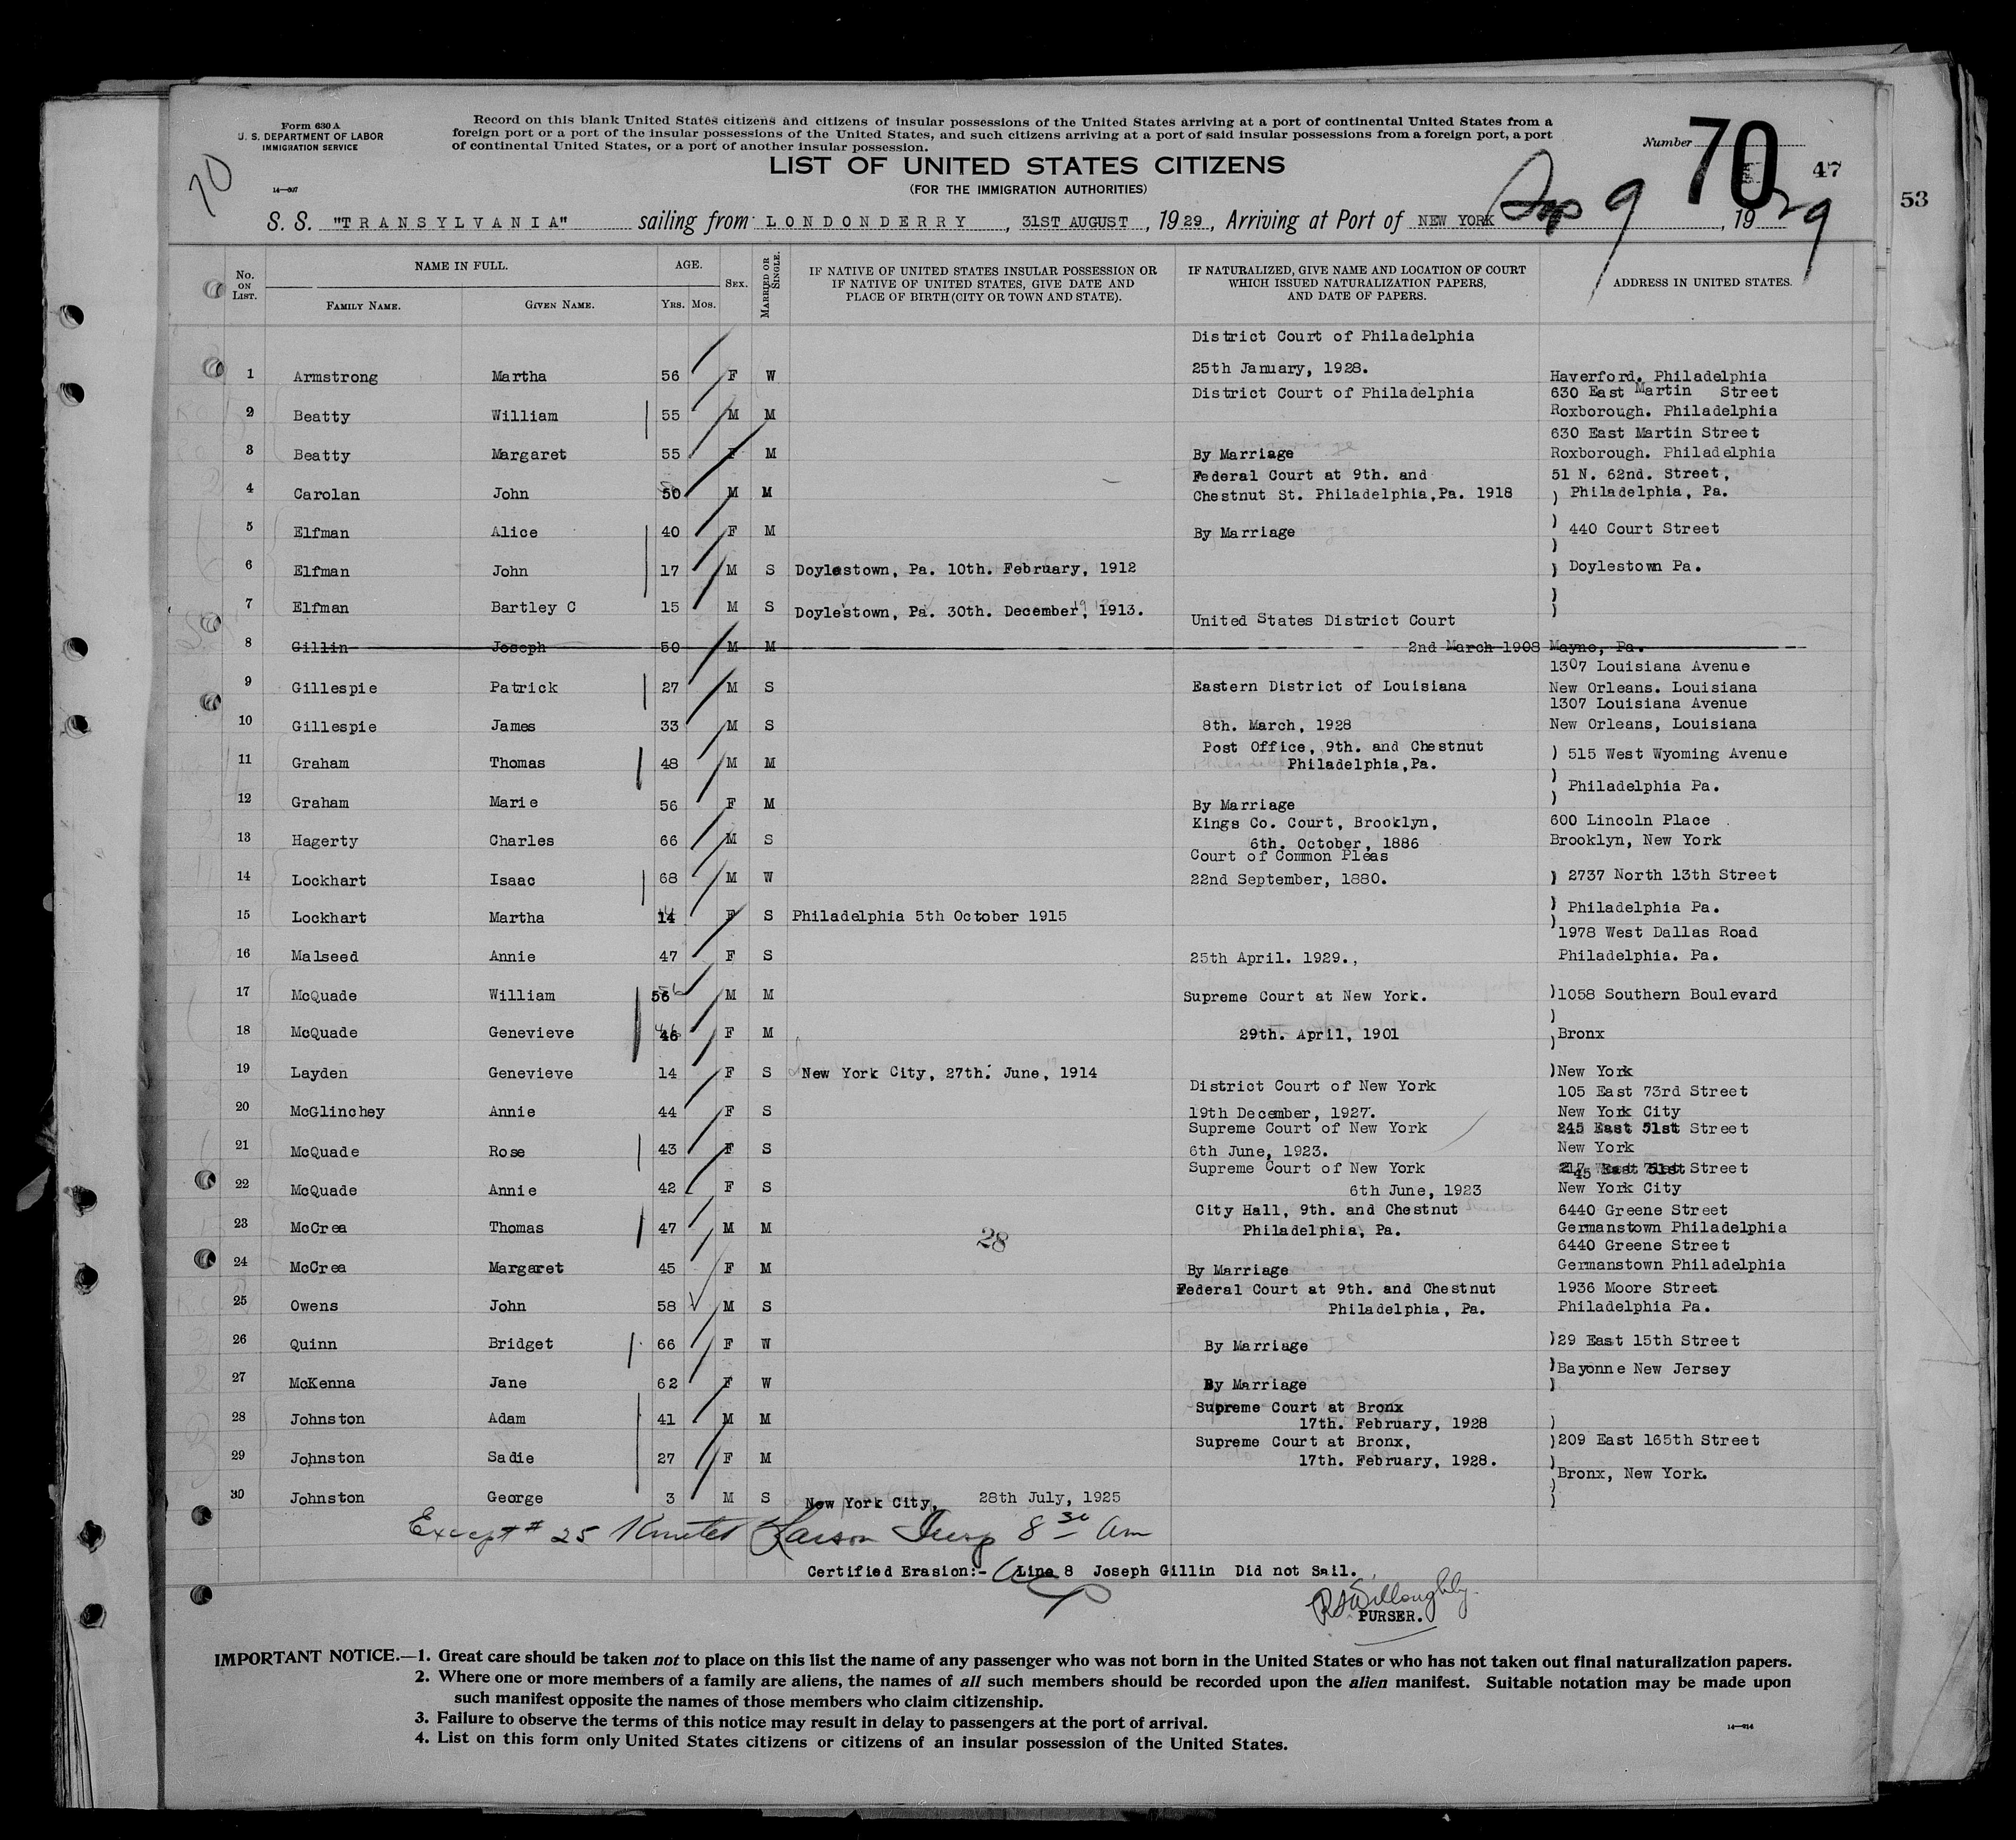 Form 630 A
U. S. DEPARTMENT OF LABOR
IMMIGRATION SERVICE
14—607
70
Record on this blank United States citizens and citizens of insular possessions of the United States arriving at a port of continental United States from a
foreign port or a port of the insular possessions of the United States, and such citizens arriving at a port of said insular possessions from a foreign port, a port
of continental United States, or a port of another insular possession.
Number 70 47
53
LIST OF UNITED STATES CITIZENS
(FOR THE IMMIGRATION AUTHORITIES)
S. S. "TRANSYLVANIA" sailing from LONDONDERRY, 31ST AUGUST, 1929, Arriving at Port of NEW YORK Sep 9, 1929
No. ON LIST. NAME IN FULL. FAMILY NAME. GIVEN NAME. AGE. YRS. MOS. SEX. MARRIED OR SINGLE. IF NATIVE OF UNITED STATES INSULAR POSSESSION OR IF NATIVE OF UNITED STATES, GIVE DATE AND PLACE OF BIRTH (CITY OR TOWN AND STATE). IF NATURALIZED, GIVE NAME AND LOCATION OF COURT WHICH ISSUED NATURALIZATION PAPERS, AND DATE OF PAPERS. ADDRESS IN UNITED STATES.
District Court of Philadelphia
1 Armstrong Martha 56 F W 25th January, 1928. Haverford. Philadelphia
District Court of Philadelphia 630 East Martin Street
2 Beatty William 55 M M Roxborough. Philadelphia
630 East Martin Street
3 Beatty Margaret 55 F M By Marriage Roxborough. Philadelphia
Federal Court at 9th. and 51 N. 62nd. Street,
4 Carolan John 50 M M Chestnut St. Philadelphia,Pa. 1918 ) Philadelphia, Pa.
5 Elfman Alice 40 F M By Marriage ) 440 Court Street
6 Elfman John 17 M S Doylestown, Pa. 10th. February, 1912 ) Doylestown Pa.
7 Elfman Bartley C 15 M S Doylestown, Pa. 30th. December, 1913. )
United States District Court
8 Gillin Joseph 50 M M 2nd March 1908 Mayno, Pa.
1307 Louisiana Avenue
9 Gillespie Patrick 27 M S Eastern District of Louisiana New Orleans. Louisiana
1307 Louisiana Avenue
10 Gillespie James 33 M S 8th. March, 1928 New Orleans, Louisiana
Post Office, 9th. and Chestnut
11 Graham Thomas 48 M M Philadelphia,Pa. ) 515 West Wyoming Avenue
) Philadelphia Pa.
12 Graham Marie 56 F M By Marriage )
Kings Co. Court, Brooklyn, 600 Lincoln Place
13 Hagerty Charles 66 M S 6th. October, 1886 Brooklyn, New York
Court of Common Pleas
14 Lockhart Isaac 68 M W 22nd September, 1880. ) 2737 North 13th Street
15 Lockhart Martha 14 F S Philadelphia 5th October 1915 ) Philadelphia Pa.
1978 West Dallas Road
16 Malseed Annie 47 F S 25th April. 1929., Philadelphia. Pa.
17 McQuade William 56 M M Supreme Court at New York. )1058 Southern Boulevard
18 McQuade Genevieve 46 F M 29th. April, 1901 )Bronx
19 Layden Genevieve 14 F S New York City, 27th. June, 1914 )New York
District Court of New York 105 East 73rd Street
20 McGlinchey Annie 44 F S 19th December, 1927. New York City
Supreme Court of New York 245 East 51st Street
21 McQuade Rose 43 F S 6th June, 1923. New York
Supreme Court of New York 45 East 51st Street
22 McQuade Annie 42 F S 6th June, 1923 New York City
City Hall, 9th. and Chestnut 6440 Greene Street
23 McCrea Thomas 47 M M Philadelphia, Pa. Germanstown Philadelphia
28
6440 Greene Street
24 McCrea Margaret 45 F M By Marriage Germanstown Philadelphia
Federal Court at 9th. and Chestnut 1936 Moore Street
25 Owens John 58 M S Philadelphia, Pa. Philadelphia Pa.
26 Quinn Bridget 66 F W By Marriage )29 East 15th Street
)Bayonne New Jersey
27 McKenna Jane 62 F W By Marriage )
Supreme Court at Bronx
28 Johnston Adam 41 M M 17th. February, 1928 )
Supreme Court at Bronx, )209 East 165th Street
29 Johnston Sadie 27 F M 17th. February, 1928. )
)Bronx, New York.
30 Johnston George 3 M S New York City, 28th July, 1925 )
Except # 25 Larson Insp 8 30 am
Certified Erasion:- Line 8 Joseph Gillin Did not Sail.
R Willoughby
PURSER.
IMPORTANT NOTICE.—1. Great care should be taken not to place on this list the name of any passenger who was not born in the United States or who has not taken out final naturalization papers.
2. Where one or more members of a family are aliens, the names of all such members should be recorded upon the alien manifest. Suitable notation may be made upon
such manifest opposite the names of those members who claim citizenship.
3. Failure to observe the terms of this notice may result in delay to passengers at the port of arrival.
14—614
4. List on this form only United States citizens or citizens of an insular possession of the United States.